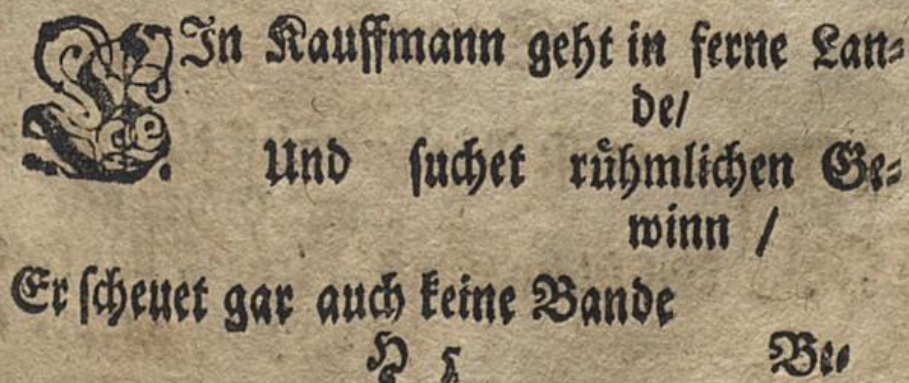 EIn Kauffmann geht in ferne Lan⸗
de/
Und suchet rühmlichen Ge⸗
winn /
Er scheuet gar auch keine Bande
H 5 Be⸗